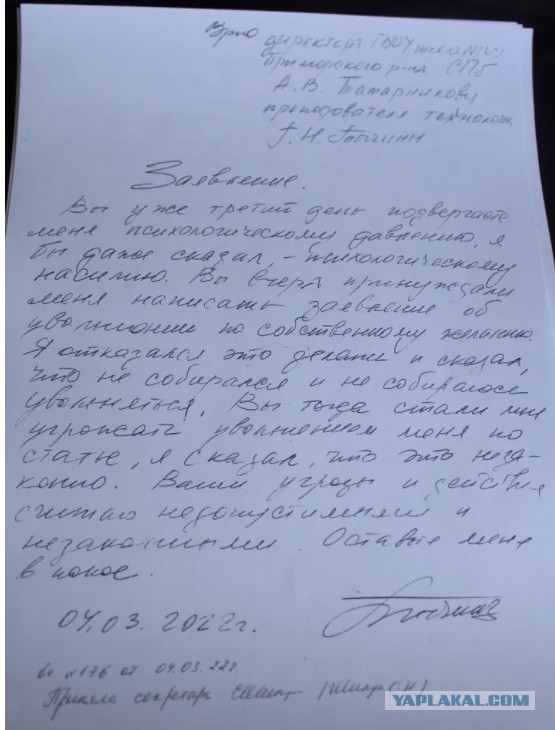 Врио директора ГБОУ школа
Приморского р-на СПб
А. В. Татарникову
преподователя технолог.
Г. Н. Тычин
Заявление.
Вы уже третий день подвергаете
меня психологическому давлению, я
бы даже сказал, - психологическому
насилию. Вы вчера принуждали
меня написать заявление об
увольнении по собственному желанию.
Я отказался это делать и сказал,
что не собирался и не собираюсь
увольняться. Вы тогда стали мне
угрожать увольнением меня по
статье, я сказал, что это неза-
конно. Ваши угрозы и действия
считаю недопустимыми и
незаконными. Оставьте меня
в покое.
04.03.2022г.
вх №176 от 04.03.22г.
Приняла секретарь
YAPLAKAL.COM